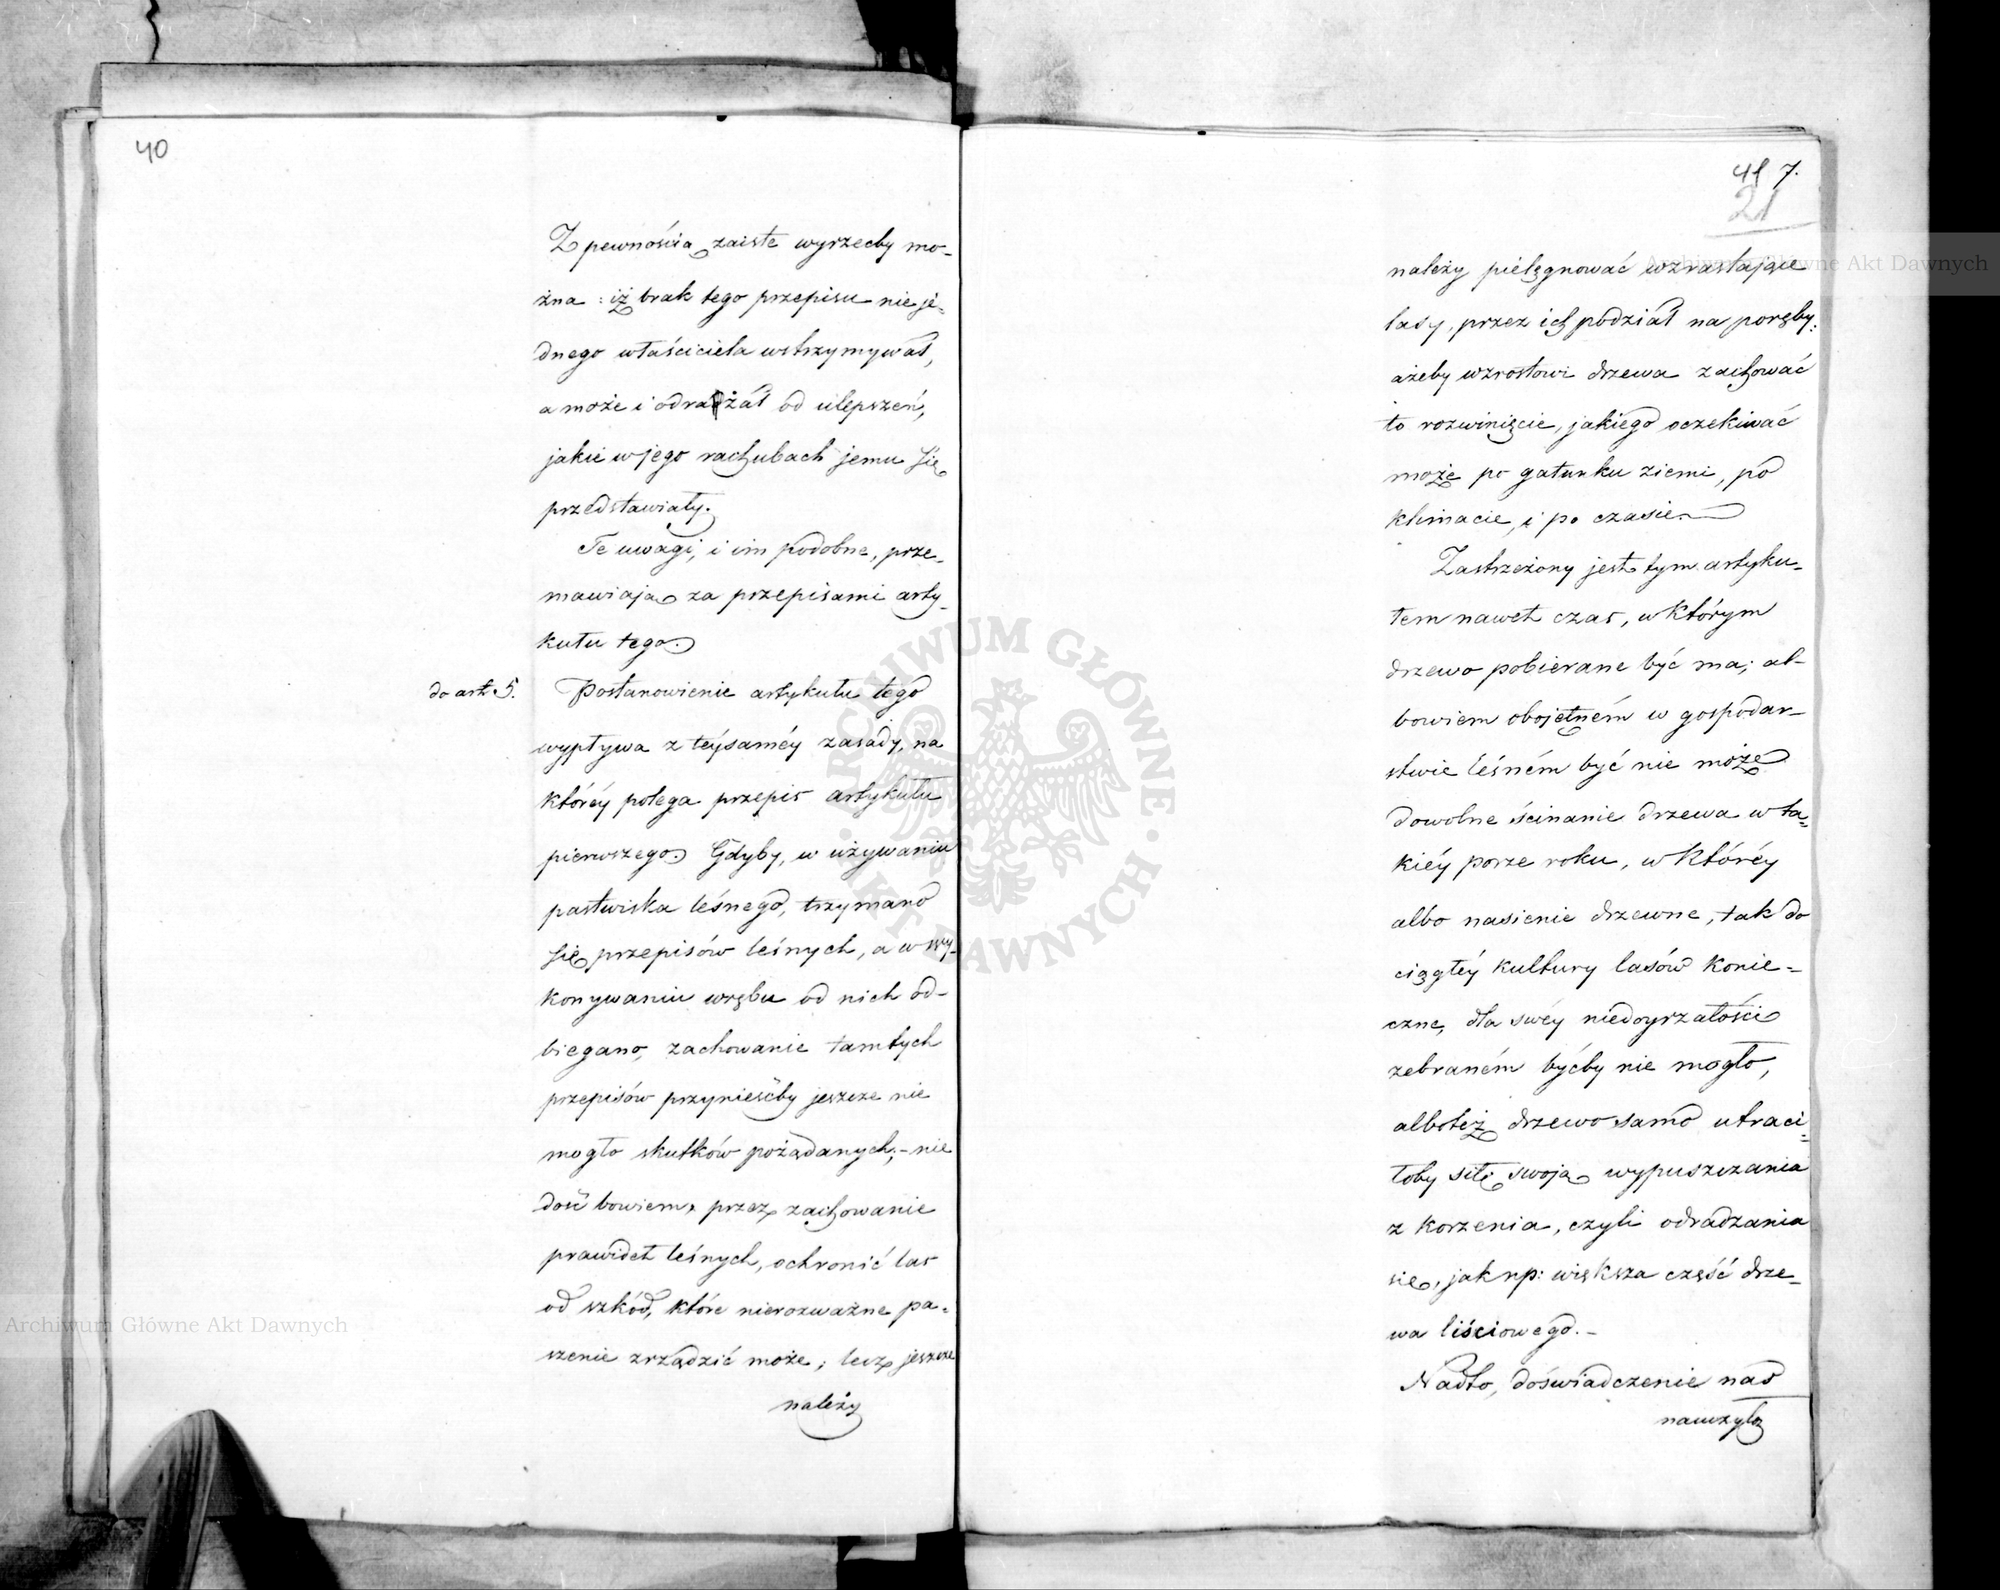 40
Z pewnością zaiste wyrzecby mo-
żna: iż brak tego przepisu nie je-
dnego właściciela wstrzymywał,
a może i odrażał od ulepszeń,
jakie w jego rachubach jemu się
przedstawiały.
Te uwagi, i im podobne, prze-
mawiają za przepisami arty-
kułu tego.
do art 5. Postanowienie artykułu tego
wypływa z téysaméy zasady, na
któréy polega przepis artykułu
pierwszego. Gdyby, w używaniu
pastwiska leśnego, trzymano
się przepisów leśnych, a w wy-
konywaniu wrębu od nich od-
biegano, zachowanie tamtych
przepisów przynieśćby jeszcze nie
mogło skutków pożądanych;- nie
dość bowiem, przez zachowanie
prawideł leśnych, ochronić las
od szkód, które nierozważne pa-
szenie zrządzić może; lecz jeszcze
należy
41 7.
21
należy pielęgnować wzrastające
lasy, przez ich podział na poręby,
ażeby wzrostowi drzewa zachować
to rozwinięcie, jakiego oczekiwać
może po gatunku ziemi, po
klimacie, i po czasie.
Zastrzeżony jest tym artyku-
łem nawet czas, w którym
drzewo pobierane być ma; al-
bowiem obojętném w gospodar-
stwie leśném być nie może
dowolne ścinanie drzewa w ta-
kiéy porze roku, w któréy
albo nasienie drzewne, tak do
ciągłéy kultury lasów konie-
czne, dla swéy niedoyrzałości
zebraném byćby nie mogło,
albotéż drzewo samo utraci-
łoby siłę swoją wypuszczania
z korzenia, czyli odradzania
się, jak np: większa część drze-
wa liściowego.-
Nadto, doświadczenie nas
nauczyło
Archiwum Główne Akt Dawnych
Archiwum Główne Akt Dawnych
ARCHIWUM GŁÓWNE · AKT DAWNYCH ·